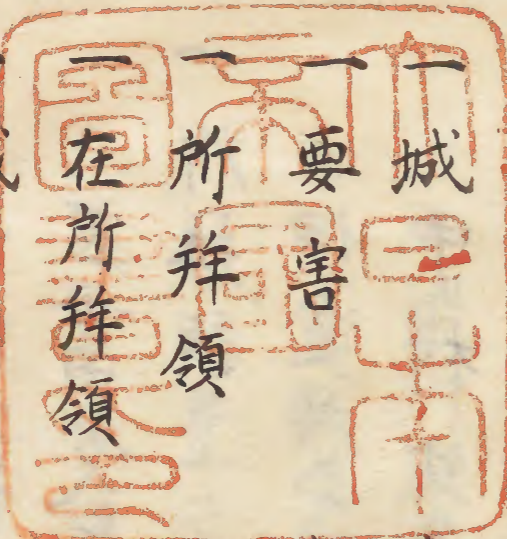 一城
一要害
一所拝領
一在所拝領